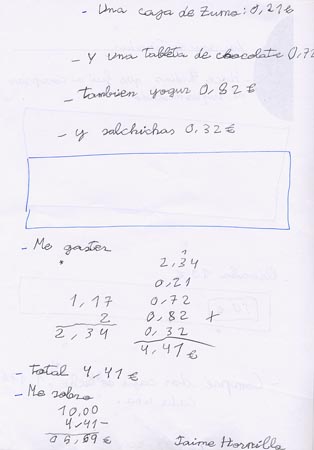 - Una caja de Zumo: 0,21€
- Y una tableta de chocolate 0,72
- tambien yogur 0,82 €
- y salchichas 0,32 €
- Me gaster
1
2,34
0,21
1,17 0,72
2 0,82 +
2,34 0,32
4,41 €
- total 4,41 €
- Me sobro
10,00
4,41 -
05,59 €
Jaime Hornilla